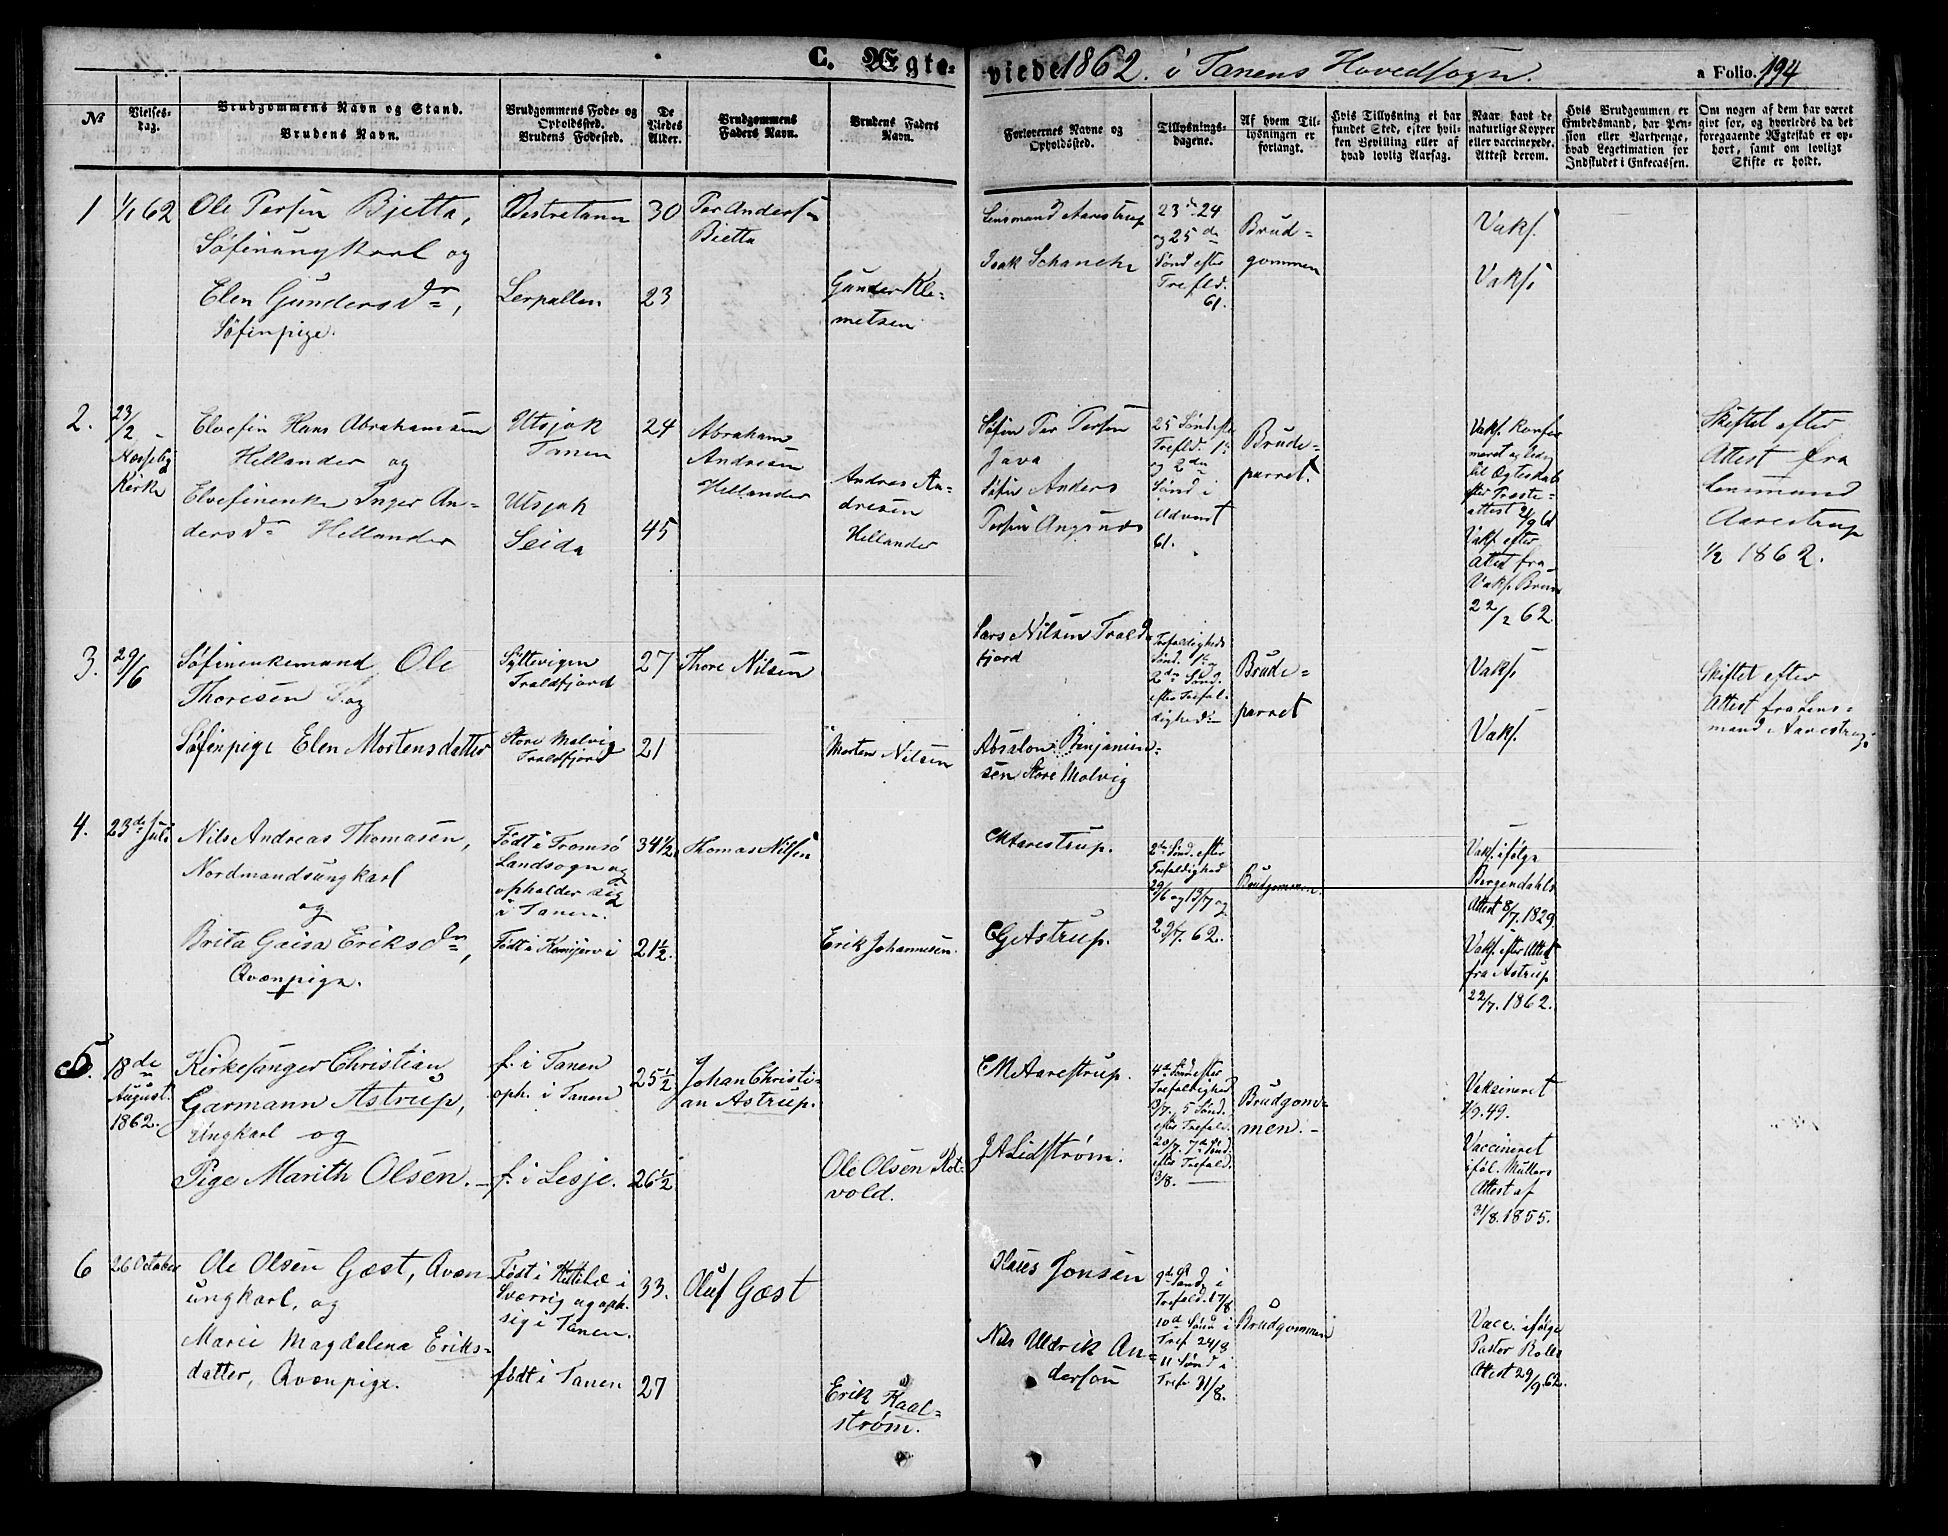 C. Ægte-
viede 1862. i Tanens Hovedsogn.
a Folio. 194
No
Vielses-
dag.
Brudgommens Navn og Stand.
Brudens Navn.
Brudgommens Føde- og
Opholdssted.
Brudens Fødested.
De
Viedes
Alder.
Brudgommens
Faders Navn.
Brudens Faders
Navn.
Forlovernes Navne og
Opholdssted.
Tillysnings-
dagene.
Af hvem Til-
lysningen er
forlangt.
Hvis Tillysning ei har
fundet Sted, efter hvil-
ken Bevilling eller af
hvad lovlig Aarsag.
Naar havt de
naturlige Kopper
eller vaccinerede.
Attest derom.
Hvis Brudgommen er
Embedsmand, har Pen-
sion eller Vartpenge,
hvad Legetimation for
Indskudet i Enkecassen.
Om nogen af dem har været
givt før, og hvorledes da det
foregaaende Ægteskab er op-
hørt, samt om lovligt
Skifte er holdt.
1
1/1 62
Ole Persen Bjetta,
Søfinungkarl og
Elen Gundersdr,
Søfinpige.
Vestretanen
Lerpollen
30
23
Per Andersen
Bietta
Gunder Kle-
metsen
Lensmand Aarestrup
Isak Schanche
23de 24
og 25de
Sønd efter
Trefld.
61.
Brud-
gommen
Vaks.
Vaks.
2.
23/2
Næsseby
Kirke
Elvefin Hans Abrahamsen
Hellander og
Elvefinenke Inger An-
dersdr Hellander
Utsjok
Tanen
Utsjok
Seida
24
45
Abraham
Andresen
Hellander
Andras An-
dresen
Hellander
Søfin Per Persen
Java
Søfin Anders
Persen Angsnæs
25 Sønd efter
Trefld. 1ste
og 2den
Sønd i
Advent
61.
Brude-
parret.
Vaks. Konfir
meret og ledig
til Ægteskab
efter Præste-
attest 21/9 61
Vaks. efter
Attest fra
Vaks. Bruun
22/2 62.
Skiftet efter
Attest fra
Lensmand
Aarestrup
1/2 1862.
3.
29/6
Søfinenkemand Ole
Thoresen og
Søfinpige Elen Mortensdatter
Syltevigen
Traldfjord
Store Molvig
Traldfjord
27
21
Thore Nilsen
Morten Nilsen
Lars Nilsen Trald
fjord
Absalon Binjamin-
sen Store Molvig
Trefaldigheds
Sønd. 1ste og
2den Sønd.
efter Trefal-
dighed.
Brude-
parret
Vaks.
Vaks.
Skiftet efter
Attest fra Lens-
mand Aarestrup.
4.
23de Juli
Nils Andreas Thomasen,
Nordmandsungkarl
og
Brita Gaisa Eriksdr,
Qvænpige.
Født i Tromsø
Landsogn og
opholder sig
i Tanen.
Født i Kemijervi
34 1/2
21 1/2.
Thomas Nilsen
Erik Johannesen.
CM Aarestrup.
CG Astrup.
2den Sønd. efter
Trefaldighed
29/6 og 13/7 og
22/7. 62.
Brudgommen.
Vaks. ifølge
Bergendahls
Attest 8/7. 1829.
Vaks. efter Attest
fra Astrup
22/7. 1862.
5.
18de
August.
1862.
Kirkesanger Christian
Garmann Astrup,
Ungkarl og
Pige Marith Olsen.
f. i Tanen
oph. i Tanen
f. i Lesje.
25 1/2
26 1/2
Johan Christi-
an Astrup.
Ole Olsen Rot-
vold.
CM Aarestrup.
JA Lidstrøm.
4de Sønd efter
Trefaldighed
13/7. 5 Sønd.
efter Trefald.
20/7. 7de Sønd.
efter Trefald.
3/8.
Brudgom-
men.
Vaksineret
1/9. 49.
Vaccineret
iføl. Müllers
Attest af
31/8. 1855.
6
26 October
Ole Olsen Gæst, Qvæn-
ungkarl, og
Marie Magdalena Eriks-
datter, Qvænpige.
Født i
Sværrig og oph.
sig i Tanen.
født i Tanen
33.
27
Oluf Gæst
Erik Kaal-
strøm.
Klaus Jonsen
Nils Uldrik An-
dersen
9de Sønd i
Trefald. 17/8
10de Sønd i
Tref 24/8
11 Sønd i
Tref 31/8.
Brudgommen
Vacc. ifølge
Pastor
Attest 29/9. 62.